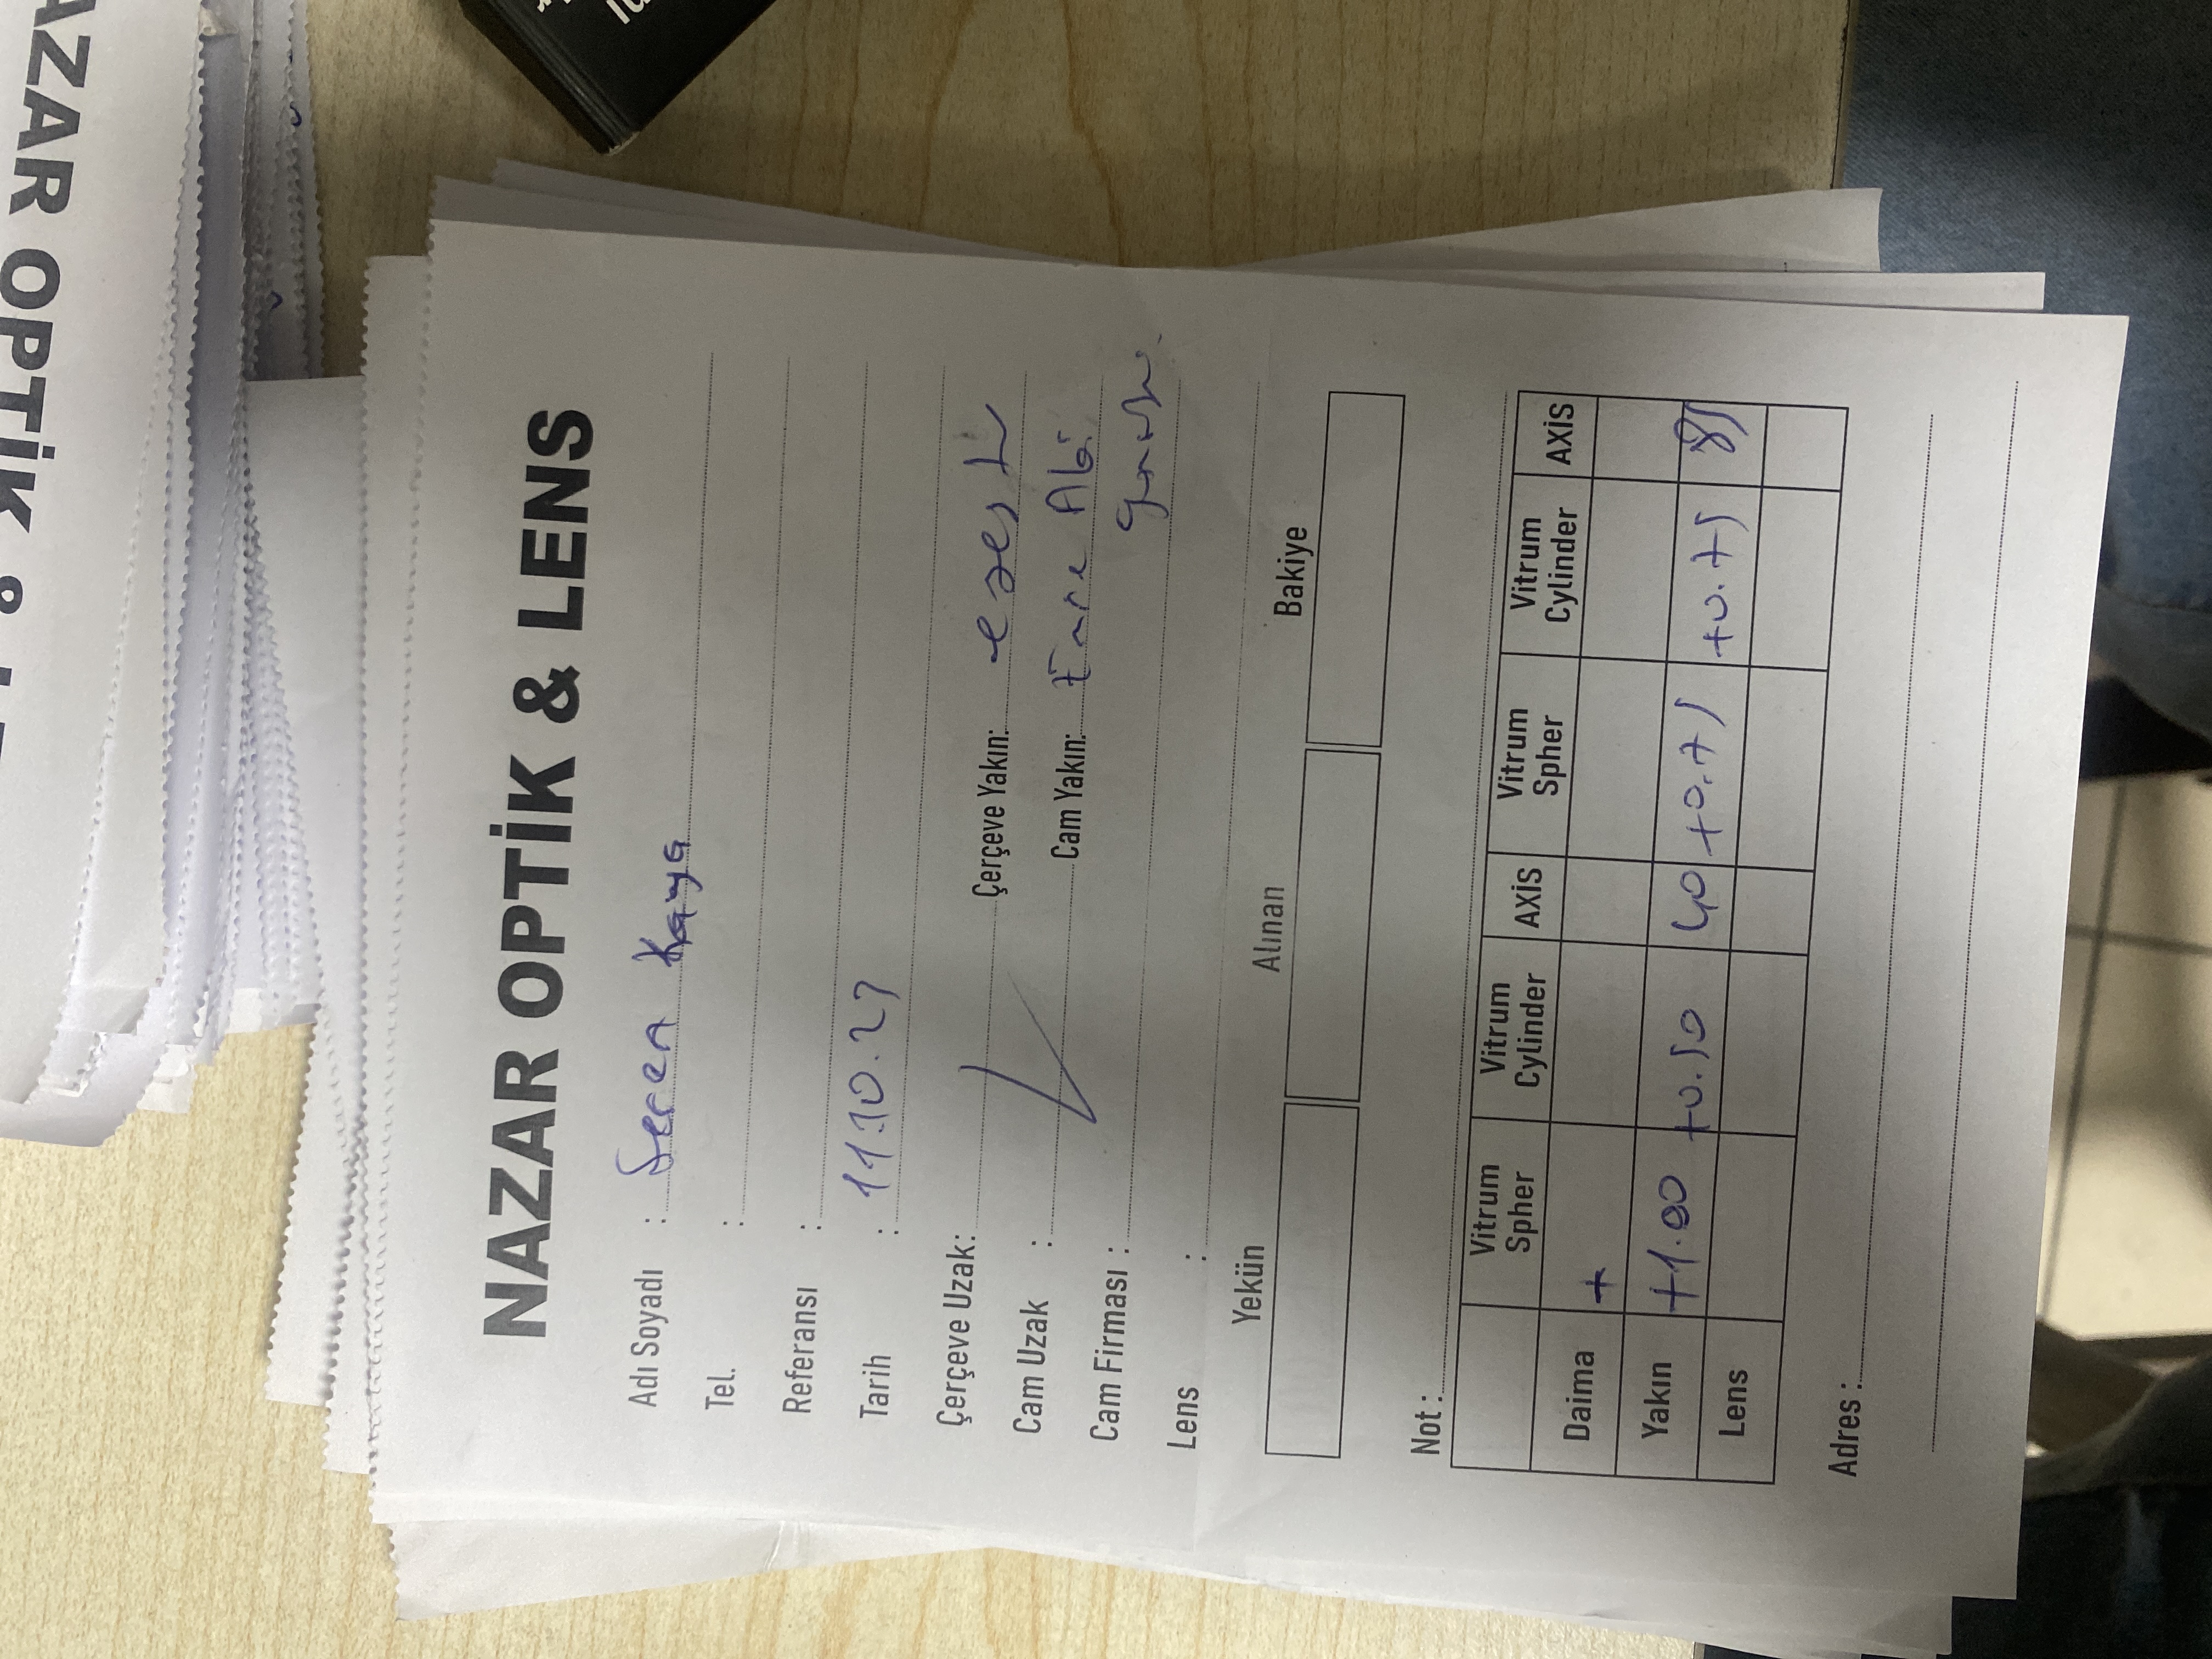 AZAR OPTİK & LE
NAZAR OPTİK & LENS
Adı Soyadı : Seren Kaya
Tel. :
Referansı :
Tarih : 11.10.23
Çerçeve Uzak: Çerçeve Yakın:
Cam Uzak : Cam Yakın: Emre Abi
Cam Firması :
Lens :
Yekün Alınan Bakiye
Not :
Vitrum Spher Vitrum Cylinder AXİS Vitrum Spher Vitrum Cylinder AXİS
Daima +
Yakın +1.00 +0.50 40 +0.75 +0.75 85
Lens
Adres :